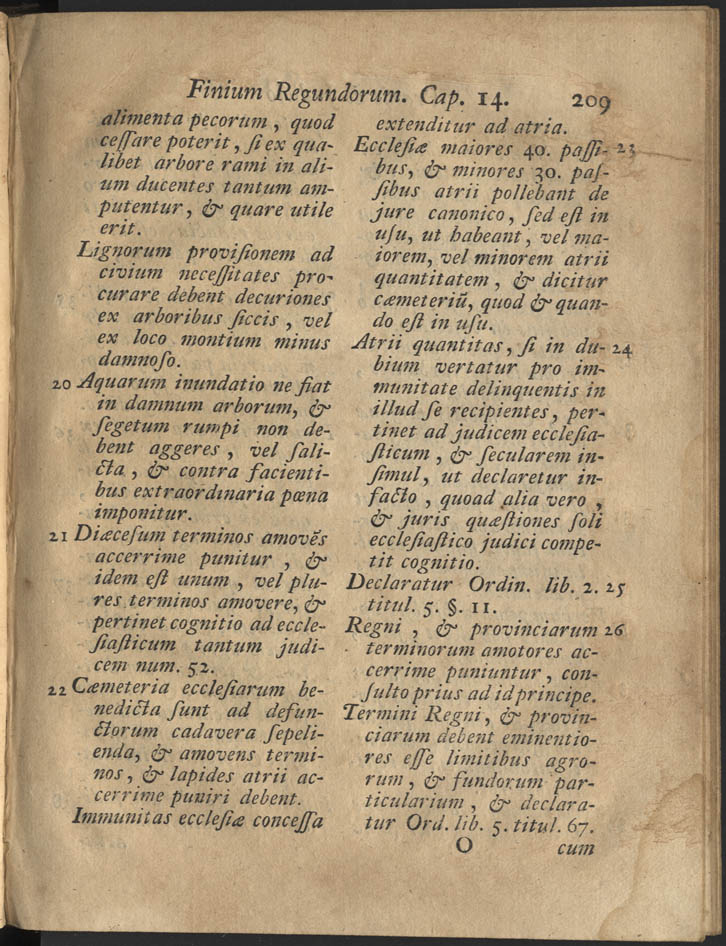 Finium Regundorum. Cap. 14. 209
alimenta pecorum, quod
ceſſare poterit, ſi ex qua-
libet arbore rami in ali-
um ducentes tantum am-
putentur, & quare utile
erit.
Lignorum proviſionem ad
civium neceſſitates pro-
curare debent decuriones
ex arboribus ſiccis, vel
ex loco montium minus
damnoſo.
20 Aquarum inundatio ne fiat
in damnum arborum, &
ſegetum rumpi non de-
bent aggeres, vel ſali-
cta, & contra facienti-
bus extraordinaria pœna
imponitur.
21 Diæceſum terminos amovẽs
accerrime punitur, &
idem eſt unum, vel plu-
res terminos amovere, &
pertinet cognitio ad eccle-
ſiaſticum tantum judi-
cem num. 52.
22 Cæmeteria eccleſiarum be-
nedicta ſunt ad defun-
ctorum cadavera ſepeli-
enda, & amovens termi-
nos, & lapides atrii ac-
cerrime puniri debent.
Immunitas eccleſiæ conceſſa
extenditur ad atria.
Eccleſiæ maiores 40. paſſi- 23
bus, & minores 30. paſ-
ſibus atrii pollebant de
jure canonico, ſed eſt in
uſu, ut habeant, vel ma-
iorem, vel minorem atrii
quantitatem, & dicitur
cæmeteriũ, quod & quan-
do eſt in uſu.
Atrii quantitas, ſi in du- 24
bium vertatur pro im-
munitate delinquentis in
illud ſe recipientes, per-
tinet ad judicem eccleſia-
ſticum, & ſecularem in-
ſimul, ut declaretur in-
facto, quoad alia vero,
& juris quæſtiones ſoli
eccleſiaſtico judici compe-
tit cognitio.
Declaratur Ordin. lib. 2. 25
titul. 5. §. 11.
Regni, & provinciarum 26
terminorum amotores ac-
cerrime puniuntur, con-
ſulto prius ad id principe.
Termini Regni, & provin-
ciarum debent eminentio-
res eſſe limitibus agro-
rum, & fundorum par-
ticularium, & declara-
tur Ord. lib. 5. titul. 67.
O cum